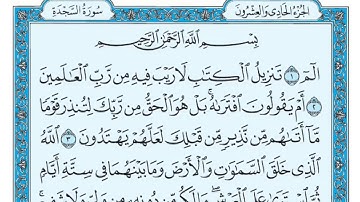 سُورَةُ السَّجْدَةِ
الجُزْءُ الحَادِي وَالعِشْرُونَ
بِسْمِ ٱللَّهِ ٱلرَّحْمَٰنِ ٱلرَّحِيمِ
الٓمٓ ١ تَنزِيلُ ٱلْكِتَٰبِ لَا رَيْبَ فِيهِ مِن رَّبِّ ٱلْعَٰلَمِينَ
٢ أَمْ يَقُولُونَ ٱفْتَرَىٰهُ ۚ بَلْ هُوَ ٱلْحَقُّ مِن رَّبِّكَ لِتُنذِرَ قَوْمًا
مَّآ أَتَىٰهُم مِّن نَّذِيرٍ مِّن قَبْلِكَ لَعَلَّهُمْ يَهْتَدُونَ ٣ ٱللَّهُ
ٱلَّذِى خَلَقَ ٱلسَّمَٰوَٰتِ وَٱلْأَرْضَ وَمَا بَيْنَهُمَا فِى سِتَّةِ أَيَّامٍ